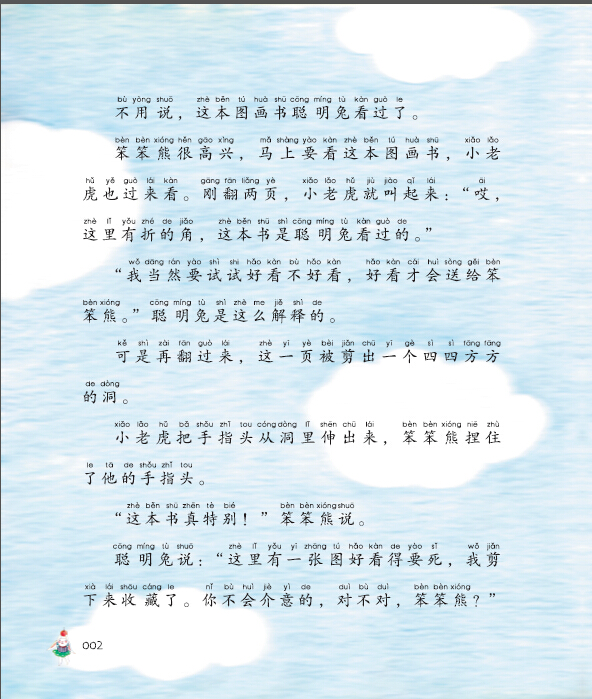 bù yòng shuō zhè běn tú huà shū cōng míng tù kàn guò le
不用说，这本图画书聪明兔看过了。
bèn bèn xióng hěn gāo xìng mǎ shàng yào kàn zhè běn tú huà shū xiǎo lǎo
笨笨熊很高兴，马上要看这本图画书，小老
hǔ yě guò lái kàn gāng fān liǎng yè xiǎo lǎo hǔ jiù jiào qǐ lái āi
虎也过来看。刚翻两页，小老虎就叫起来：“哎，
zhè lǐ yǒu zhé de jiǎo zhè běn shū shì cōng míng tù kàn guò de
这里有折的角，这本书是聪明兔看过的。”
wǒ dāng rán yào shì shi hǎo kàn bù hǎo kàn hǎo kàn cái huì sòng gěi bèn
“我当然要试试好看不好看，好看才会送给笨
bèn xióng cōng míng tù shì zhè me jiě shì de
笨熊。”聪明兔是这么解释的。
kě shì zài fān guò lái zhè yí yè bèi jiǎn chū yí gè sì sì fāng fāng
可是再翻过来，这一页被剪出一个四四方方
de dòng
的洞。
xiǎo lǎo hǔ bǎ shǒu zhǐ tou cóng dòng lǐ shēn chū lái bèn bèn xióng niē zhù
小老虎把手指头从洞里伸出来，笨笨熊捏住
le tā de shǒu zhǐ tou
了他的手指头。
zhè běn shū zhēn tè bié bèn bèn xióng shuō
“这本书真特别！”笨笨熊说。
cōng míng tù shuō zhè lǐ yǒu yì zhāng tú hǎo kàn de yào sǐ wǒ jiǎn
聪明兔说：“这里有一张图好看得要死，我剪
xià lái shōu cáng le nǐ bú huì jiè yì de duì bù duì bèn bèn xióng
下来收藏了。你不会介意的，对不对，笨笨熊？”
002